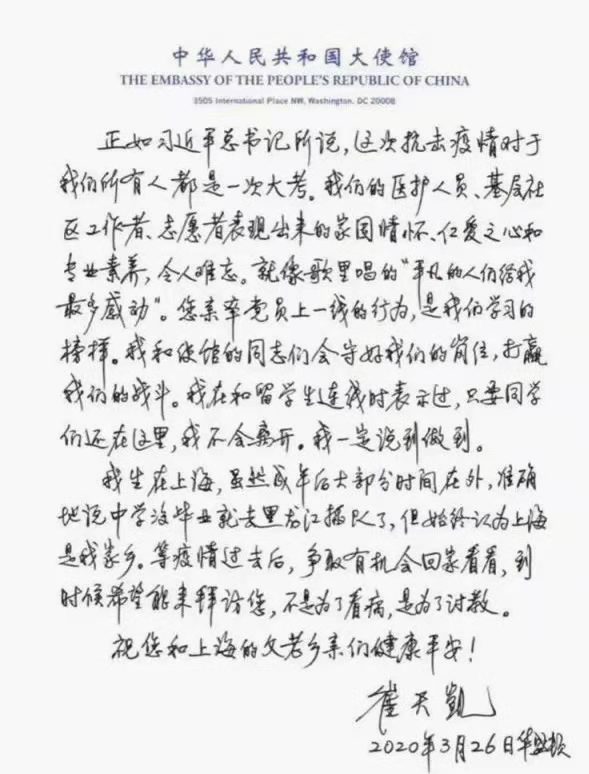 中华人民共和国大使馆
THE EMBASSY OF THE PEOPLE'S REPUBLIC OF CHINA
3505 International Place NW, Washington, DC 20008
正如习近平总书记所说，这次抗击疫情对于
我们所有人都是一次大考。我们的医护人员、基层社
区工作者、志愿者表现出来的家国情怀、仁爱之心和
专业素养，令人难忘。就像歌里唱的“平凡的人们给我
最多感动”。您亲率党员上一线的行为，是我们学习的
榜样。我和使馆的同志们会守好我们的岗位，打赢
我们的战斗。我在和留学生连线时表示过，只要同学
们还在这里，我不会离开。我一定说到做到。
我生在上海，虽然成年后大部分时间在外，准确
地说中学没毕业就去黑龙江插队了，但始终认为上海
是我家乡。等疫情过去后，争取有机会回家看看，到
时候希望能来拜访您，不是为了看病，是为了讨教。
祝您和上海的父老乡亲们健康平安！
崔天凯
2020年3月26日华盛顿